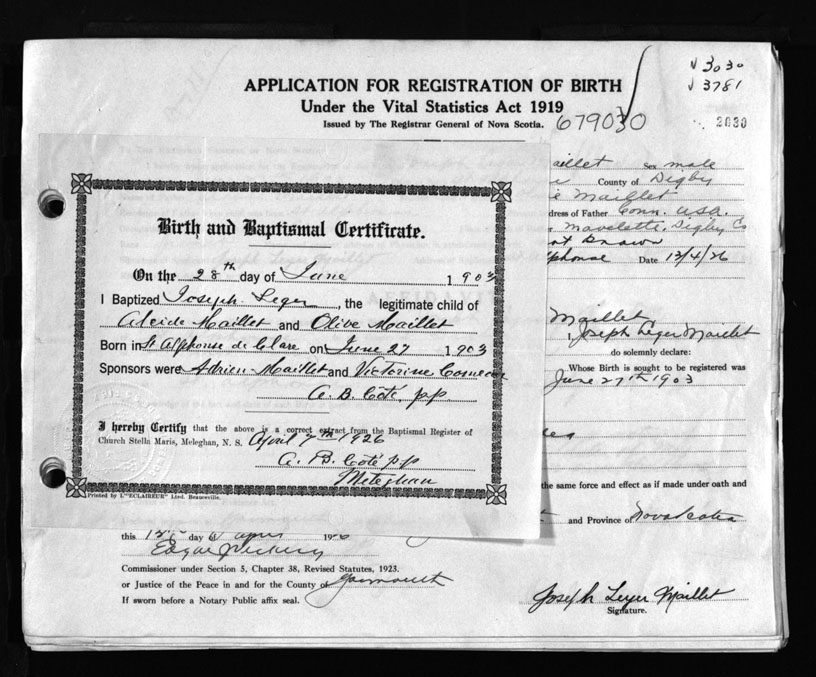 √ 3030
√ 3781
APPLICATION FOR REGISTRATION OF BIRTH
Under the Vital Statistics Act 1919
Issued by The Registrar General of Nova Scotia.
679030
2030
aillet Sex male
County of Digby
ie Maillet
dress of Father Conn. USA.
Mavolette, Digby Co
ot Known
lphonse Date 12/4/26
Birth and Baptismal Certificate.
On the 28th day of June 1903
I Baptized Joseph Leger, the legitimate child of
Alcide Maillet and Olive Maillet
Born in St Alphonse de Clare on June 27 1903
Sponsors were Adrien Maillet and Victorine Comeau
A. B. Coté, pp
I hereby Certify that the above is a correct extract from the Baptismal Register of
Church Stella Maris, Meteghan, N. S. April 7th 1926
A. B. Coté pp
Meteghan
Printed by L'"ECLAIREUR" Lted. Beauceville.
Maillet
I, Joseph Leger Maillet
do solemnly declare:
Whose Birth is sought to be registered was
June 27th 1903
the same force and effect as if made under oath and
and Province of Nova Scotia
this 12th day of April 1926
Edgar Vickery
Commissioner under Section 5, Chapter 38, Revised Statutes, 1923.
or Justice of the Peace in and for the County of Yarmouth
If sworn before a Notary Public affix seal.
Joseph Leger Maillet
Signature.